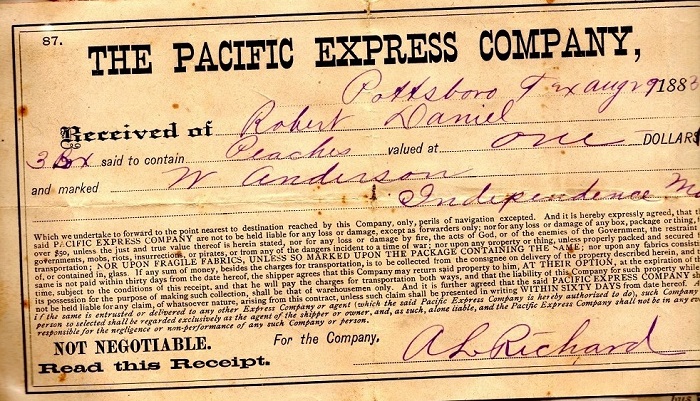 87.
THE PACIFIC EXPRESS COMPANY,
Pottsboro Tex aug 29 1883
Received of Robert Daniel
3 Bx said to contain Peaches valued at one DOLLARS
and marked W Anderson
Independence M
Which we undertake to forward to the point nearest to destination reached by this Company, only, perils of navigation excepted. And it is hereby expressly agreed, that t
said PACIFIC EXPRESS COMPANY are not to be held liable for any loss or damage, except as forwarders only; nor for any loss or damage of any box, package or thing, f
over $50, unless the just and true value thereof is herein stated, nor for any loss or damage by fire, the acts of God, or of the enemies of the Government, the restraint
governments, mobs, riots, insurrections, or pirates, or from any of the dangers incident to a time of war; nor upon any property or thing, unless properly packed and secured f
transportation; NOR UPON FRAGILE FABRICS, UNLESS SO MARKED UPON THE PACKAGE CONTAINING THE SAME; nor upon any fabrics consisti
of, or contained in, glass. If any sum of money, besides the charges for transportation, is to be collected from the consignee on delivery of the property described herein, and t
same is not paid within thirty days from the date hereof, the shipper agrees that this Company may return said property to him, AT THEIR OPTION, at the expiration of th
time, subject to the conditions of this receipt, and that he will pay the charges for transportation both ways, and that the liability of this Company for such property while
its possession for the purpose of making such collection, shall be that of warehousemen only. And it is further agreed that the said PACIFIC EXPRESS COMPANY sh
not be held liable for any claim, of whatsoever nature, arising from this contract, unless such claim shall be presented in writing WITHIN SIXTY DAYS from date hereof. A
if the same is entrusted or delivered to any other Express Company or agent (which the said Pacific Express Company is hereby authorized to do), such Company
person so selected shall be regarded exclusively as the agent of the shipper or owner, and, as such, alone liable, and the Pacific Express Company shall not be in any ev
responsible for the negligence or non-performance of any such Company or person.
NOT NEGOTIABLE.
For the Company,
A L Richard
Read this Receipt.